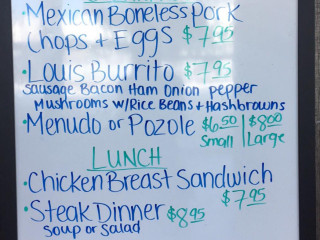 • Mexican Boneless Pork
Chops + Eggs $7.95
• Louis Burrito $7.95
Sausage Bacon Ham Onion Pepper
Mushrooms w/Rice Beans + Hashbrowns
• Menudo or Pozole $6.50 | $8.00
Small | Large
LUNCH
• Chicken Breast Sandwich
$7.95
• Steak Dinner $8.95
Soup or Salad